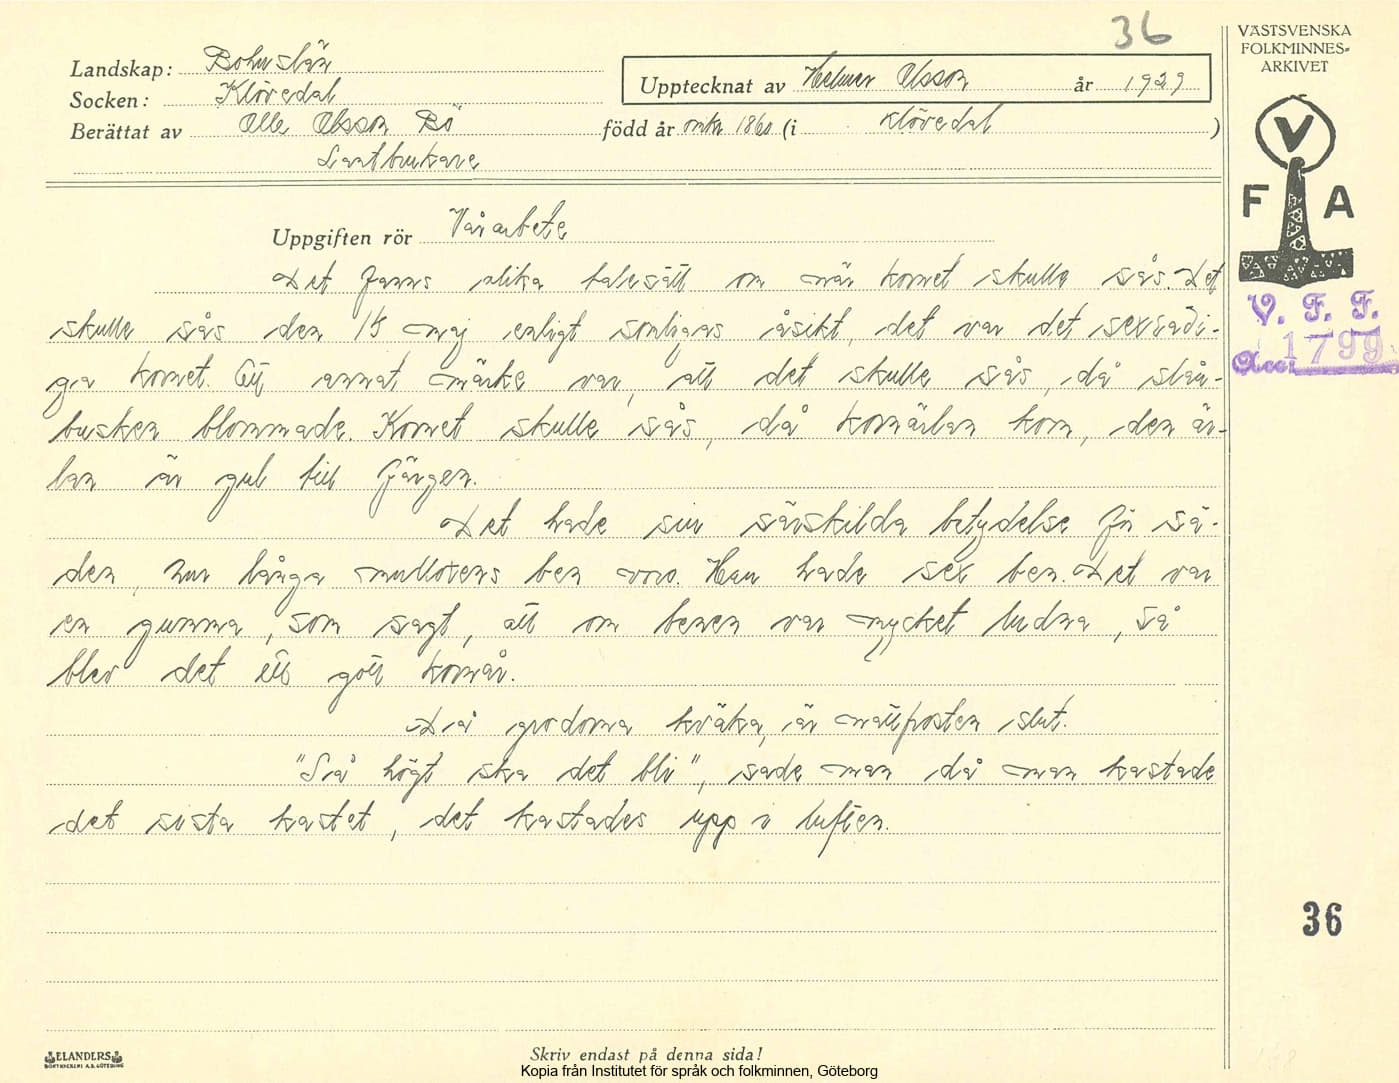 36
VÄSTSVENSKA
FOLKMINNES-
ARKIVET
Landskap: Bohuslän
Socken: Klövedal
Upptecknat av Helmer Olsson år 1929
Berättat av Olle Olsson Bö född år omkr 1860 (i Klövedal)
Lantbrukare
V
F A
V. F. F.
Acc. 1799
Uppgiften rör Vårarbete
Det fanns olika talesätt om när kornet skulle sås. Det
skulle sås den 15 maj enligt somligas åsikt, det var det sexradi-
ga kornet. Ett annat märke var, att det skulle sås, då slån-
busken blommade. Kornet skulle sås, då kornärlan kom, den är-
lan är gul till färgen.
Det hade sin särskilda betydelse för sä-
den, hur långa mulloxens ben voro. Han hade sex ben. Det var
en gumma, som sagt, att om benen var mycket ludna, så
blev det ett gott kornår.
Då grodorna kväka, är nattfrosten slut.
"Så högt ska det bli", sade man då man kastade
det sista kastet, det kastades upp i luften.
36
ELANDERS
BOKTRYCKERI A.B. GÖTEBORG
Skriv endast på denna sida!
Kopia från Institutet för språk och folkminnen, Göteborg